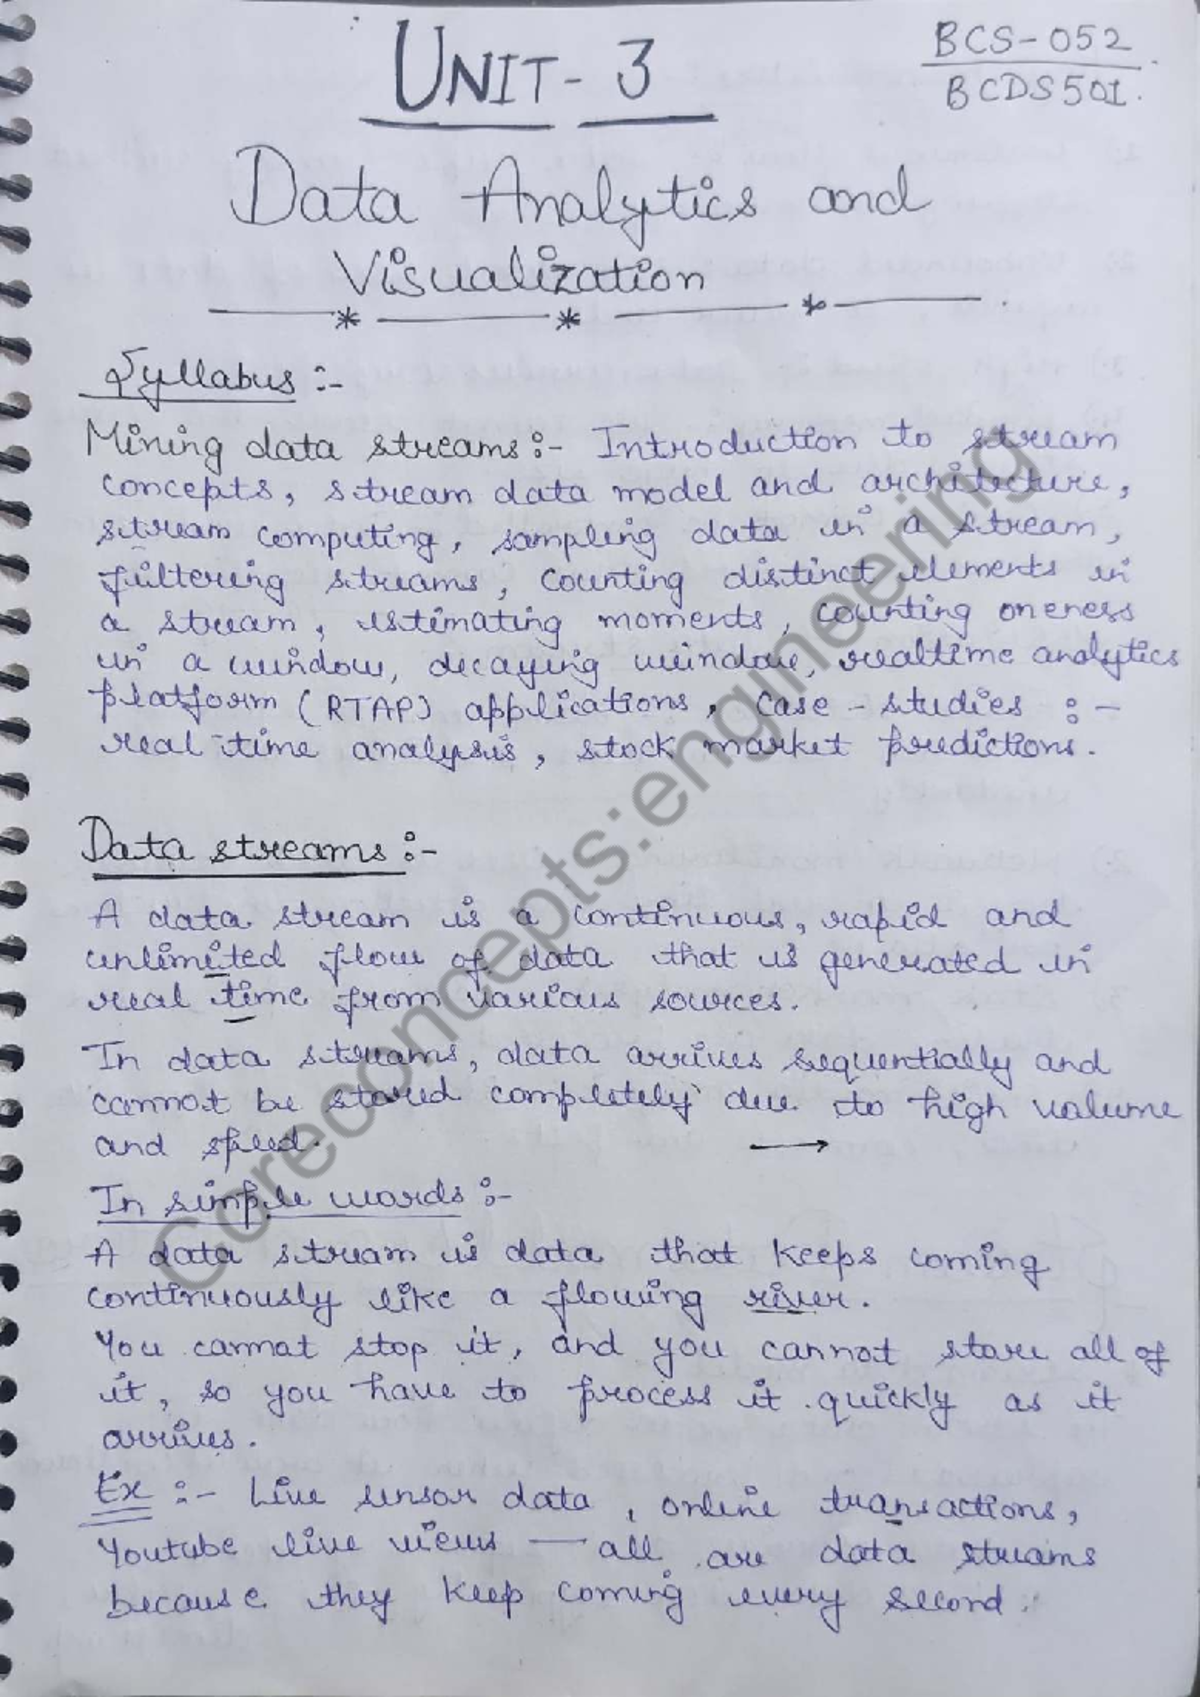 UNIT - 3
BCS-052
BCDS501.
Data Analytics and
Visualization
Syllabus :-
Mining data streams:- Introduction to stream
concepts, stream data model and architecture,
stream computing, sampling data in a stream,
filtering streams, counting distinct elements in
a stream, estimating moments, counting oneness
in a window, decaying window, realtime analytics
platform (RTAP) applications, case-studies :-
real time analysis, stock market predictions.
Data streams :-
A data stream is a continuous, rapid and
unlimited flow of data that is generated in
real time from various sources.
In data streams, data arrives sequentially and
cannot be stored completely due to high volume
and speed. →
In simple words :-
A data stream is data that keeps coming
continuously like a flowing river.
You cannot stop it, and you cannot store all of
it, so you have to process it quickly as it
arrives.
Ex :- Live sensor data, online transactions,
Youtube live views — all are data streams
because they keep coming every second.
Coreconcepts:engineering